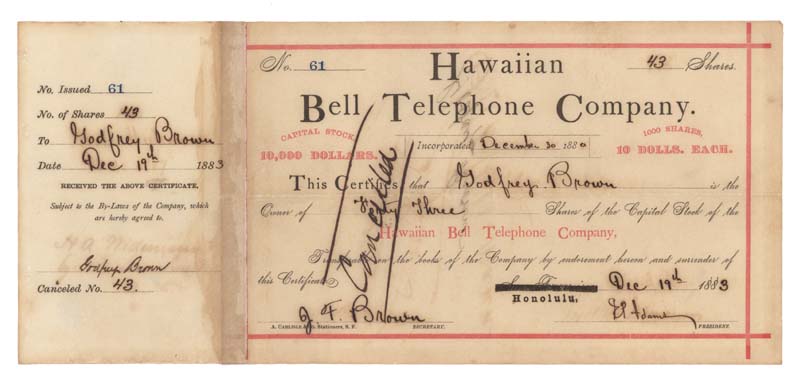 No. Issued 61
No. of Shares 43
To Godfrey Brown
Date Dec 19th 1883
RECEIVED THE ABOVE CERTIFICATE,
Subject to the By-Laws of the Company, which
are hereby agreed to.
Godfrey Brown
Canceled No. 43.
No. 61
Hawaiian
43 Shares.
Bell Telephone Company.
CAPITAL STOCK
10,000 DOLLARS.
Incorporated December 30 1880
1000 SHARES,
10 DOLLS. EACH.
This Certifies that Godfrey Brown is the
Owner of Forty Three Shares of the Capital Stock of the
Hawaiian Bell Telephone Company,
Transferable on the books of the Company by endorsement hereon and surrender of
this Certificate.
Cancelled
Honolulu, Dec 19th 1883
J. F. Brown
A. CARLISLE & Co. Stationers, S. F.
SECRETARY.
PRESIDENT.